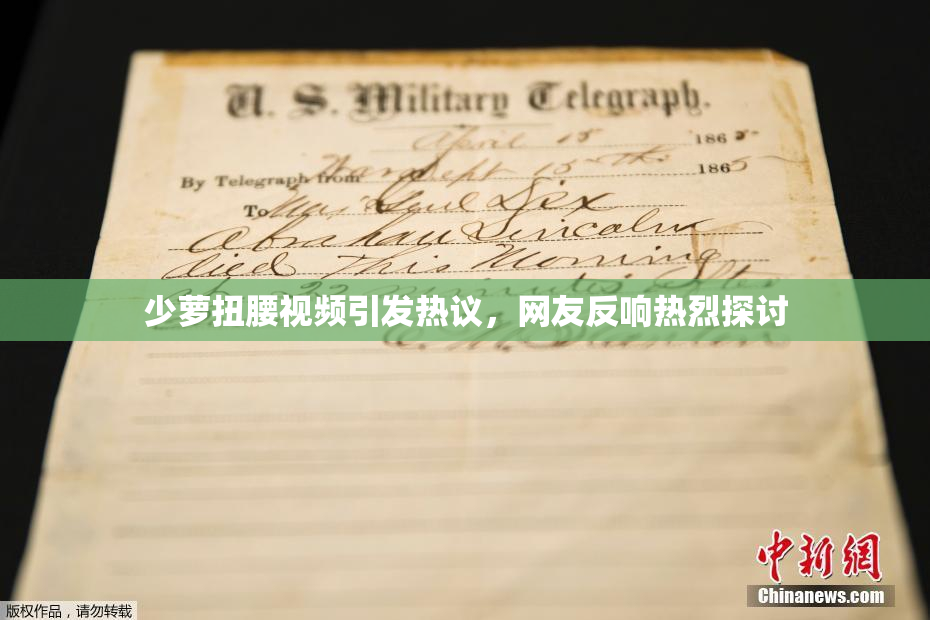 U. S. Military Telegraph.
April 15 1865
By Telegraph from War Dept 15th 1865
To Maj Genl Dix
Abraham Lincoln
died This Morning
22 minutes after
少萝扭腰视频引发热议，网友反响热烈探讨
中新网
Chinanews.com
版权作品，请勿转载